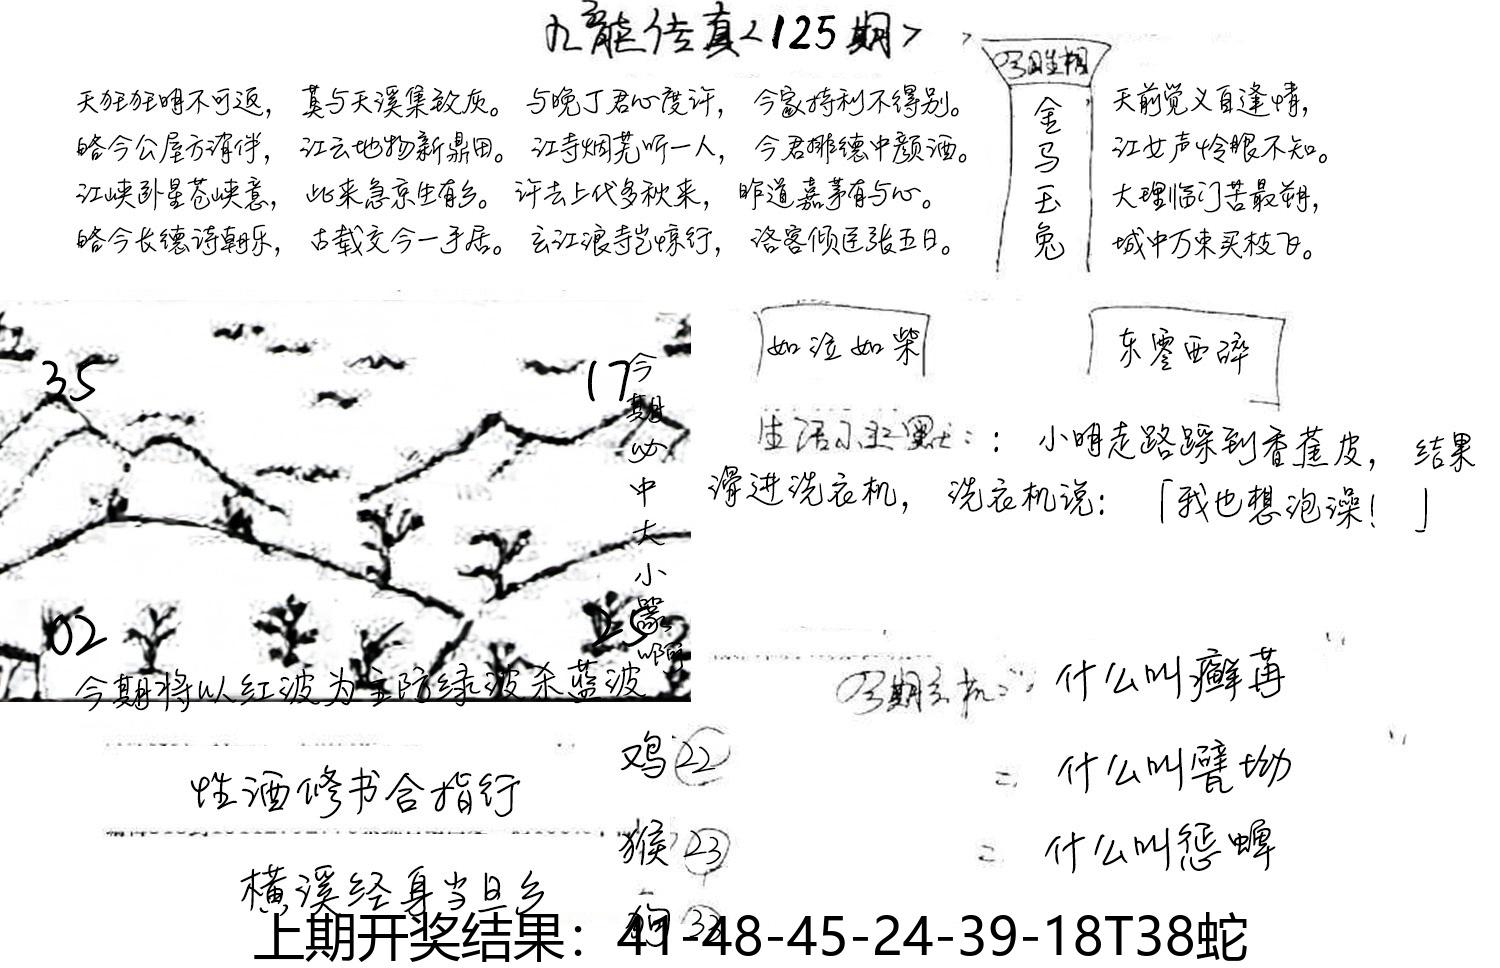 九龍传真<125期>
天狂狂明不可返， 莫与天溪集致灰。 与晚丁君心度许， 今家持利不得别。
皓今公屋方消伴， 江云地物新鼎田。 江寺烟芜听一人， 今君排德中颜酒。
江峡卧星苍峡意， 此来急京生有乡。 许去上代多秋来， 昨道嘉茅有与心。
皓今长德诗朝乐， 古载交今一手居。 玄江浪寺岂惊行， 洛客倾区张五日。
金马玉兔
天前觉义自逢情，
江女声怜眼不知。
大理临门苦最朔，
城中万束买枝飞。
如泣如柴
东零西碎
小明走路踩到香蕉皮， 结果
滑进洗衣机， 洗衣机说： 「我也想泡澡！ 」
35
17
02
25
今期必中大小
今期将以红波为主防绿波杀蓝波
什么叫癣苒
什么叫甓坳
什么叫惩蟬
性酒修书合指行
横溪经身当旦乡
鸡22
猴23
狗33
上期开奖结果：41-48-45-24-39-18T38蛇